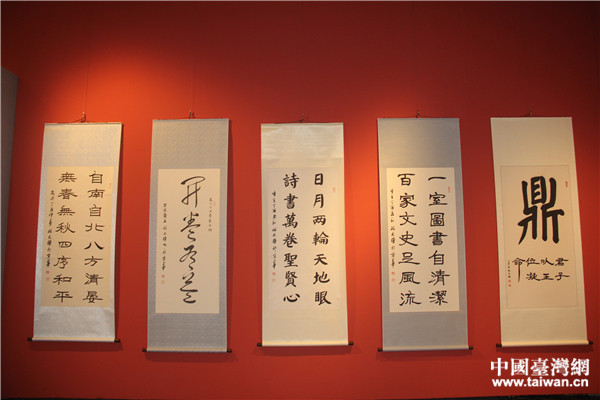 自南自北八方清晏
無春無秋四序和平
开卷有益
日月两輪天地眼
詩書萬卷聖賢心
一室圖書自清潔
百家文史足風流
鼎
君子
以正
位凝
命
中國臺灣網
www.taiwan.cn